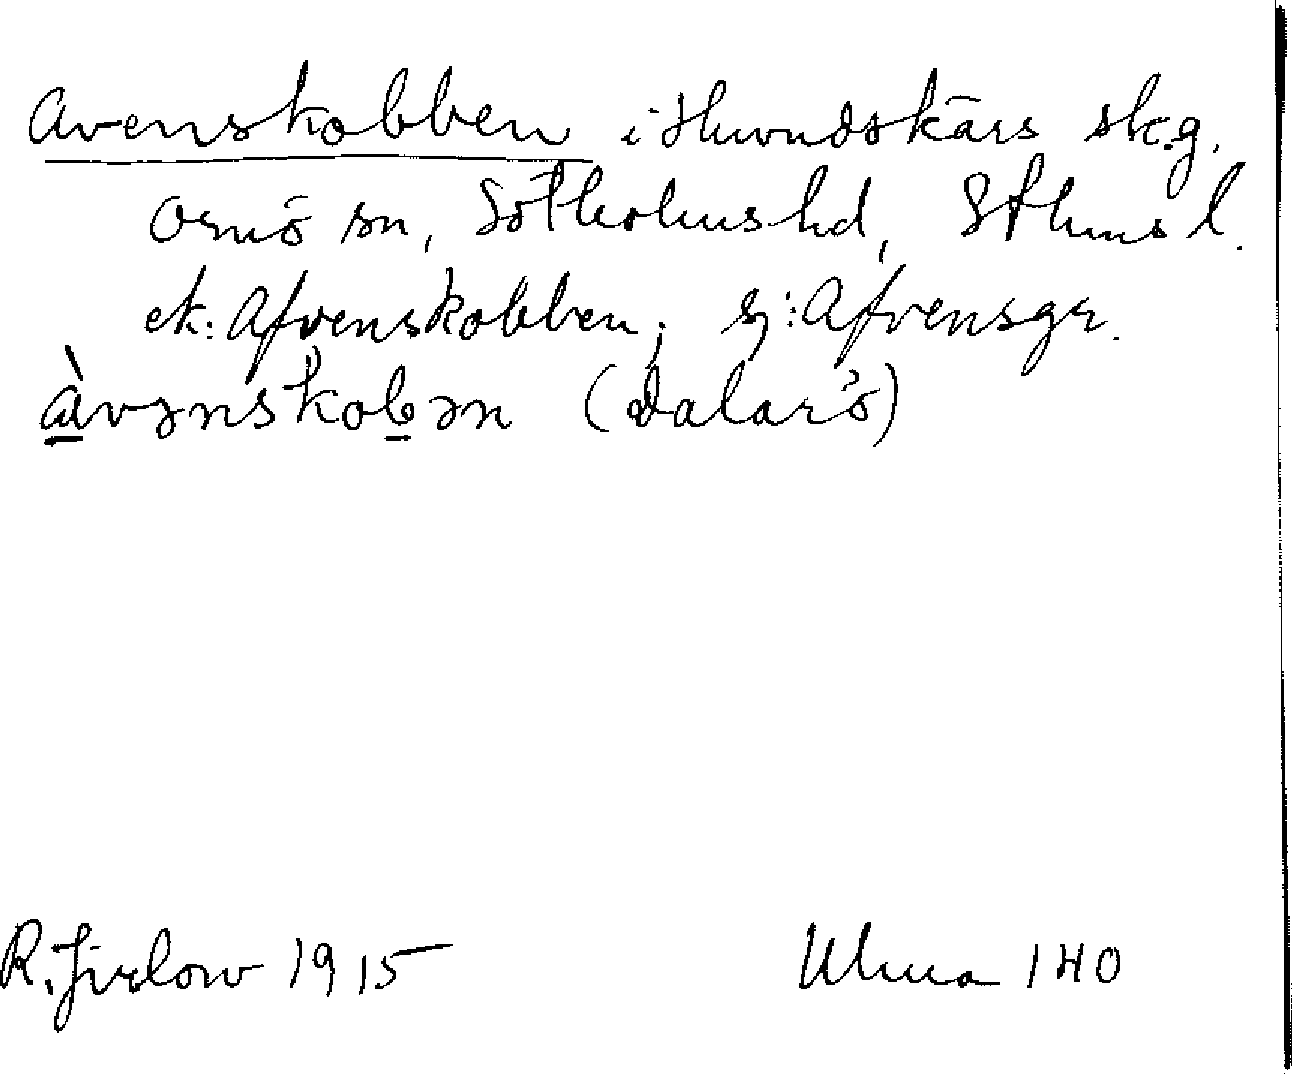 Avenskobben i Huvudskärs skg.
Ornö sn, Sotholms hd, Sthms l.
ek: Afvenskobben; sj: Afvensgr.
àvənskobən (Dalarö)
R. Jirlow 1915 Ulma 140